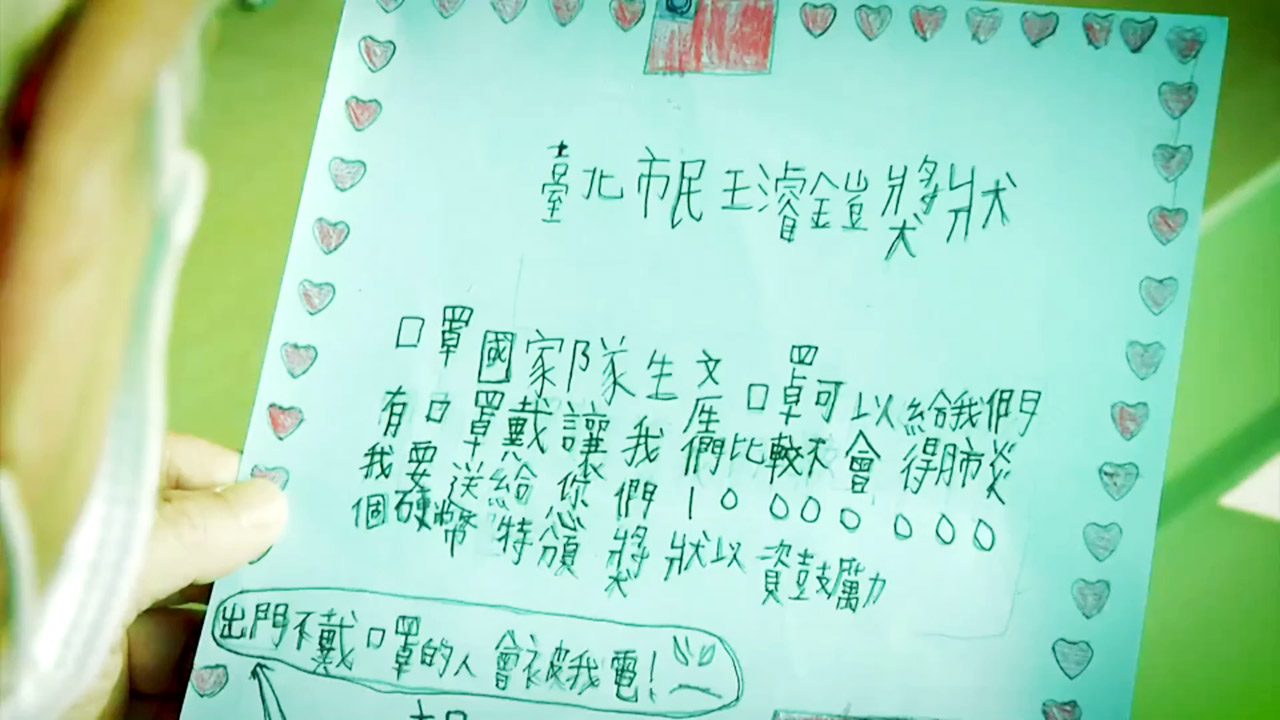 臺北市民王濬鎧獎狀
口罩國家隊生產口罩可以給我們
有口罩戴讓我們比較不會得肺炎
我要送給你們10000000
個硬幣特頒獎狀以資鼓勵
出門不戴口罩的人會被我電!